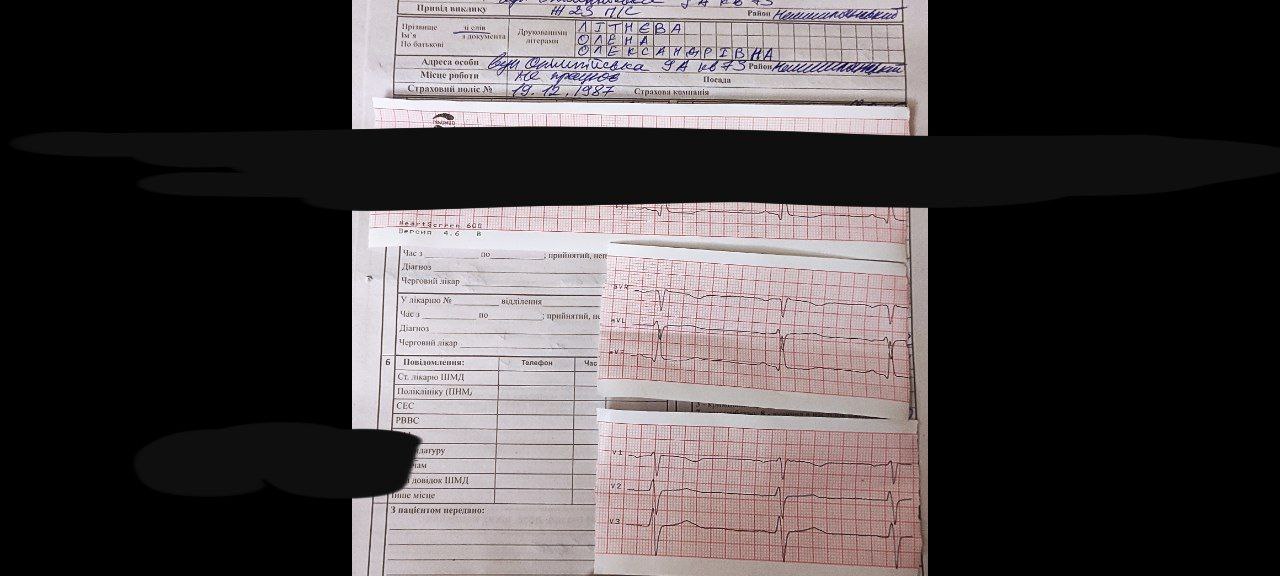 Привід виклику Ж 23 П/С Район
Прізвище зі слів Друкованими ЛІТНЄВА
Ім'я з документа літерами ОЛЕНА
По батькові ОЛЕКСАНДРІВНА
Адреса особи вул Олімпійська 9А кв 73 Район
Місце роботи не працює Посада
Страховий поліс № 19.12.1987 Страхова компанія
HeartScreen 60G
Версия 4.6 В
Час з по ; прийнятий,
Діагноз
Черговий лікар
У лікарню № відділення
Час з по ; прийнятий,
Діагноз
Черговий лікар
aVR
aVL
aVF
6 Повідомлення: Телефон Час
Ст. лікарю ШМД
Поліклініку (ПНМ
СЕС
РВВС
V1
довідок ШМД
V2
Інше місце
З пацієнтом передано:
V3